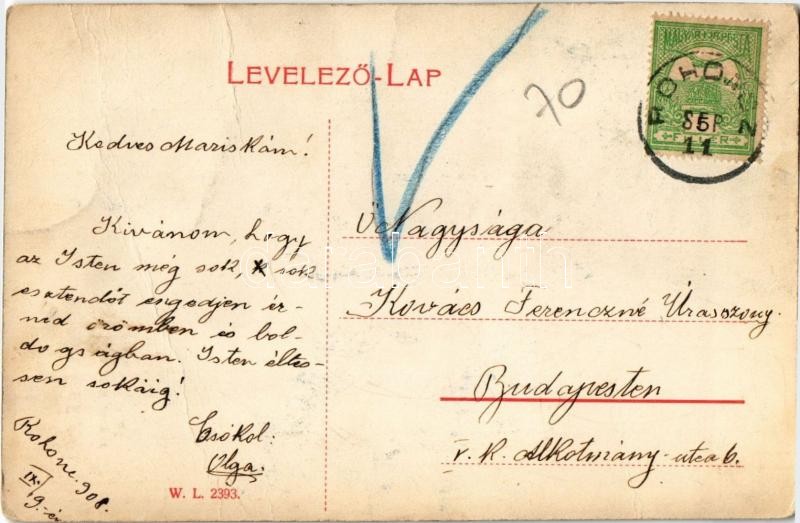 LEVELEZŐ-LAP
70
MAGYAR KIR. POSTA
ROHO
SEP
11
5
FILLÉR
Kedves Mariskám!
Kivánom, hogy
az Isten még sok, sok
esztendőt engedjen ér-
nid örömben és bol-
dogságban. Isten éltes-
sen sokáig!
Csókol:
Olga.
908.
IX.
9.-én
Ő Nagysága
Kovács Ferenczné Úrasszony.
Budapesten
V. k. Alkotmány-utca 6.
W. L. 2393.
darabanth